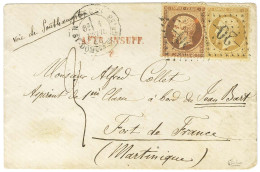 voie de Southampton
AFFR. INSUFF.
Monsieur Alfred Collet
Aspirant de 1ère Classe à bord du Jean Bart
Fort de France
(Martinique)